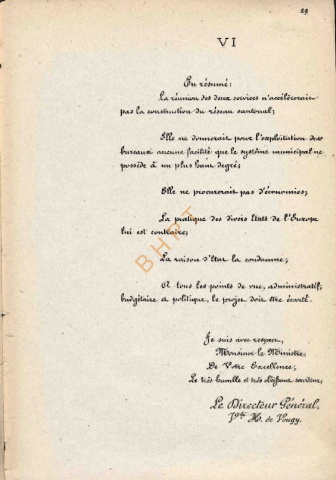 29
VI
En résumé :
La réunion des deux services n'accélèrerait
pas la construction du réseau cantonal ;
Elle ne donnerait pour l'exploitation des
bureaux aucune facilité que le système municipal ne
possède à un plus haut degré ;
Elle ne procurerait pas d'économies ;
La pratique des divers Etats de l'Europe
lui est contraire ;
La raison d'Etat la condamne ;
A tous les points de vue, administratif,
budgétaire et politique, le projet doit être écarté.
Je suis avec respect,
Monsieur le Ministre,
De Votre Excellence,
Le très humble et très obéissant serviteur,
Le Directeur Général,
Vte H. de Vougy.
BHPT